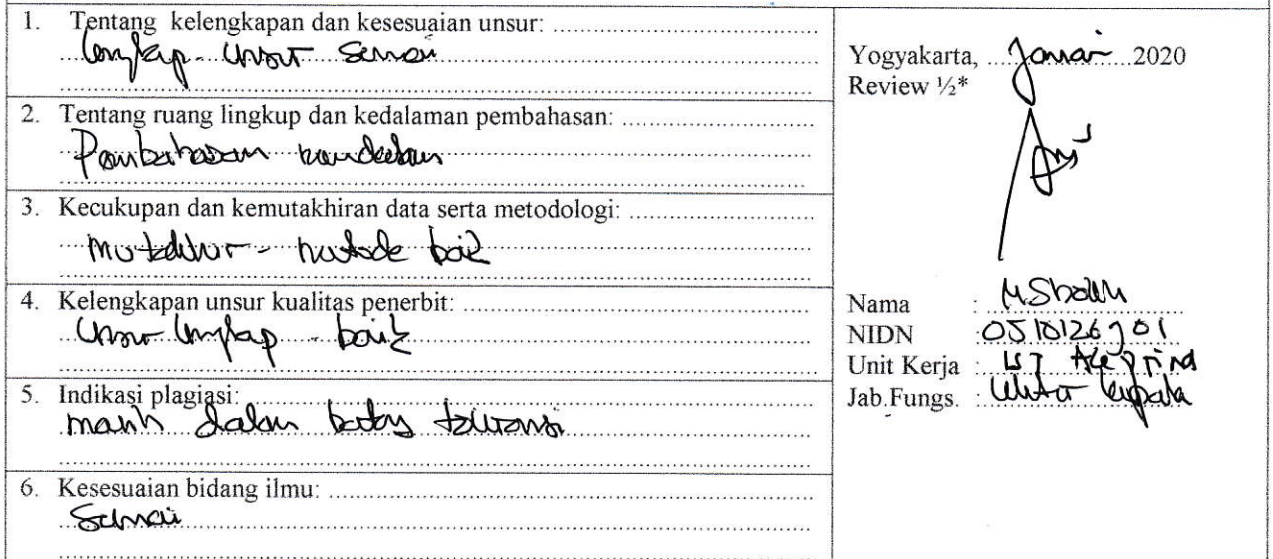 1. Tentang kelengkapan dan kesesuaian unsur:
lengkap - unsur sesuai
2. Tentang ruang lingkup dan kedalaman pembahasan:
Pembahasan mendalam
3. Kecukupan dan kemutakhiran data serta metodologi:
mutakhir - metode baik
4. Kelengkapan unsur kualitas penerbit:
Unsur lengkap - baik
5. Indikasi plagiasi:
masih dalam batas toleransi
6. Kesesuaian bidang ilmu:
Sesuai
Yogyakarta, Januari 2020
Review ½*
Nama :
NIDN :
Unit Kerja :
Jab.Fungs. : Lektor Kepala